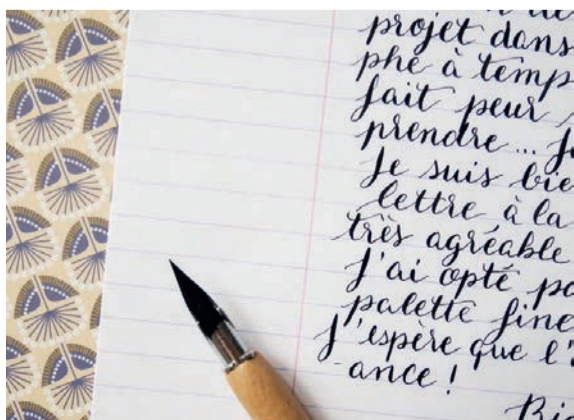 projet dans
phé à temp
fait peur
prendre... J
Je suis bie
lettre à la
très agréable
J'ai opté po
palette fine
J'espère que l'
ance !